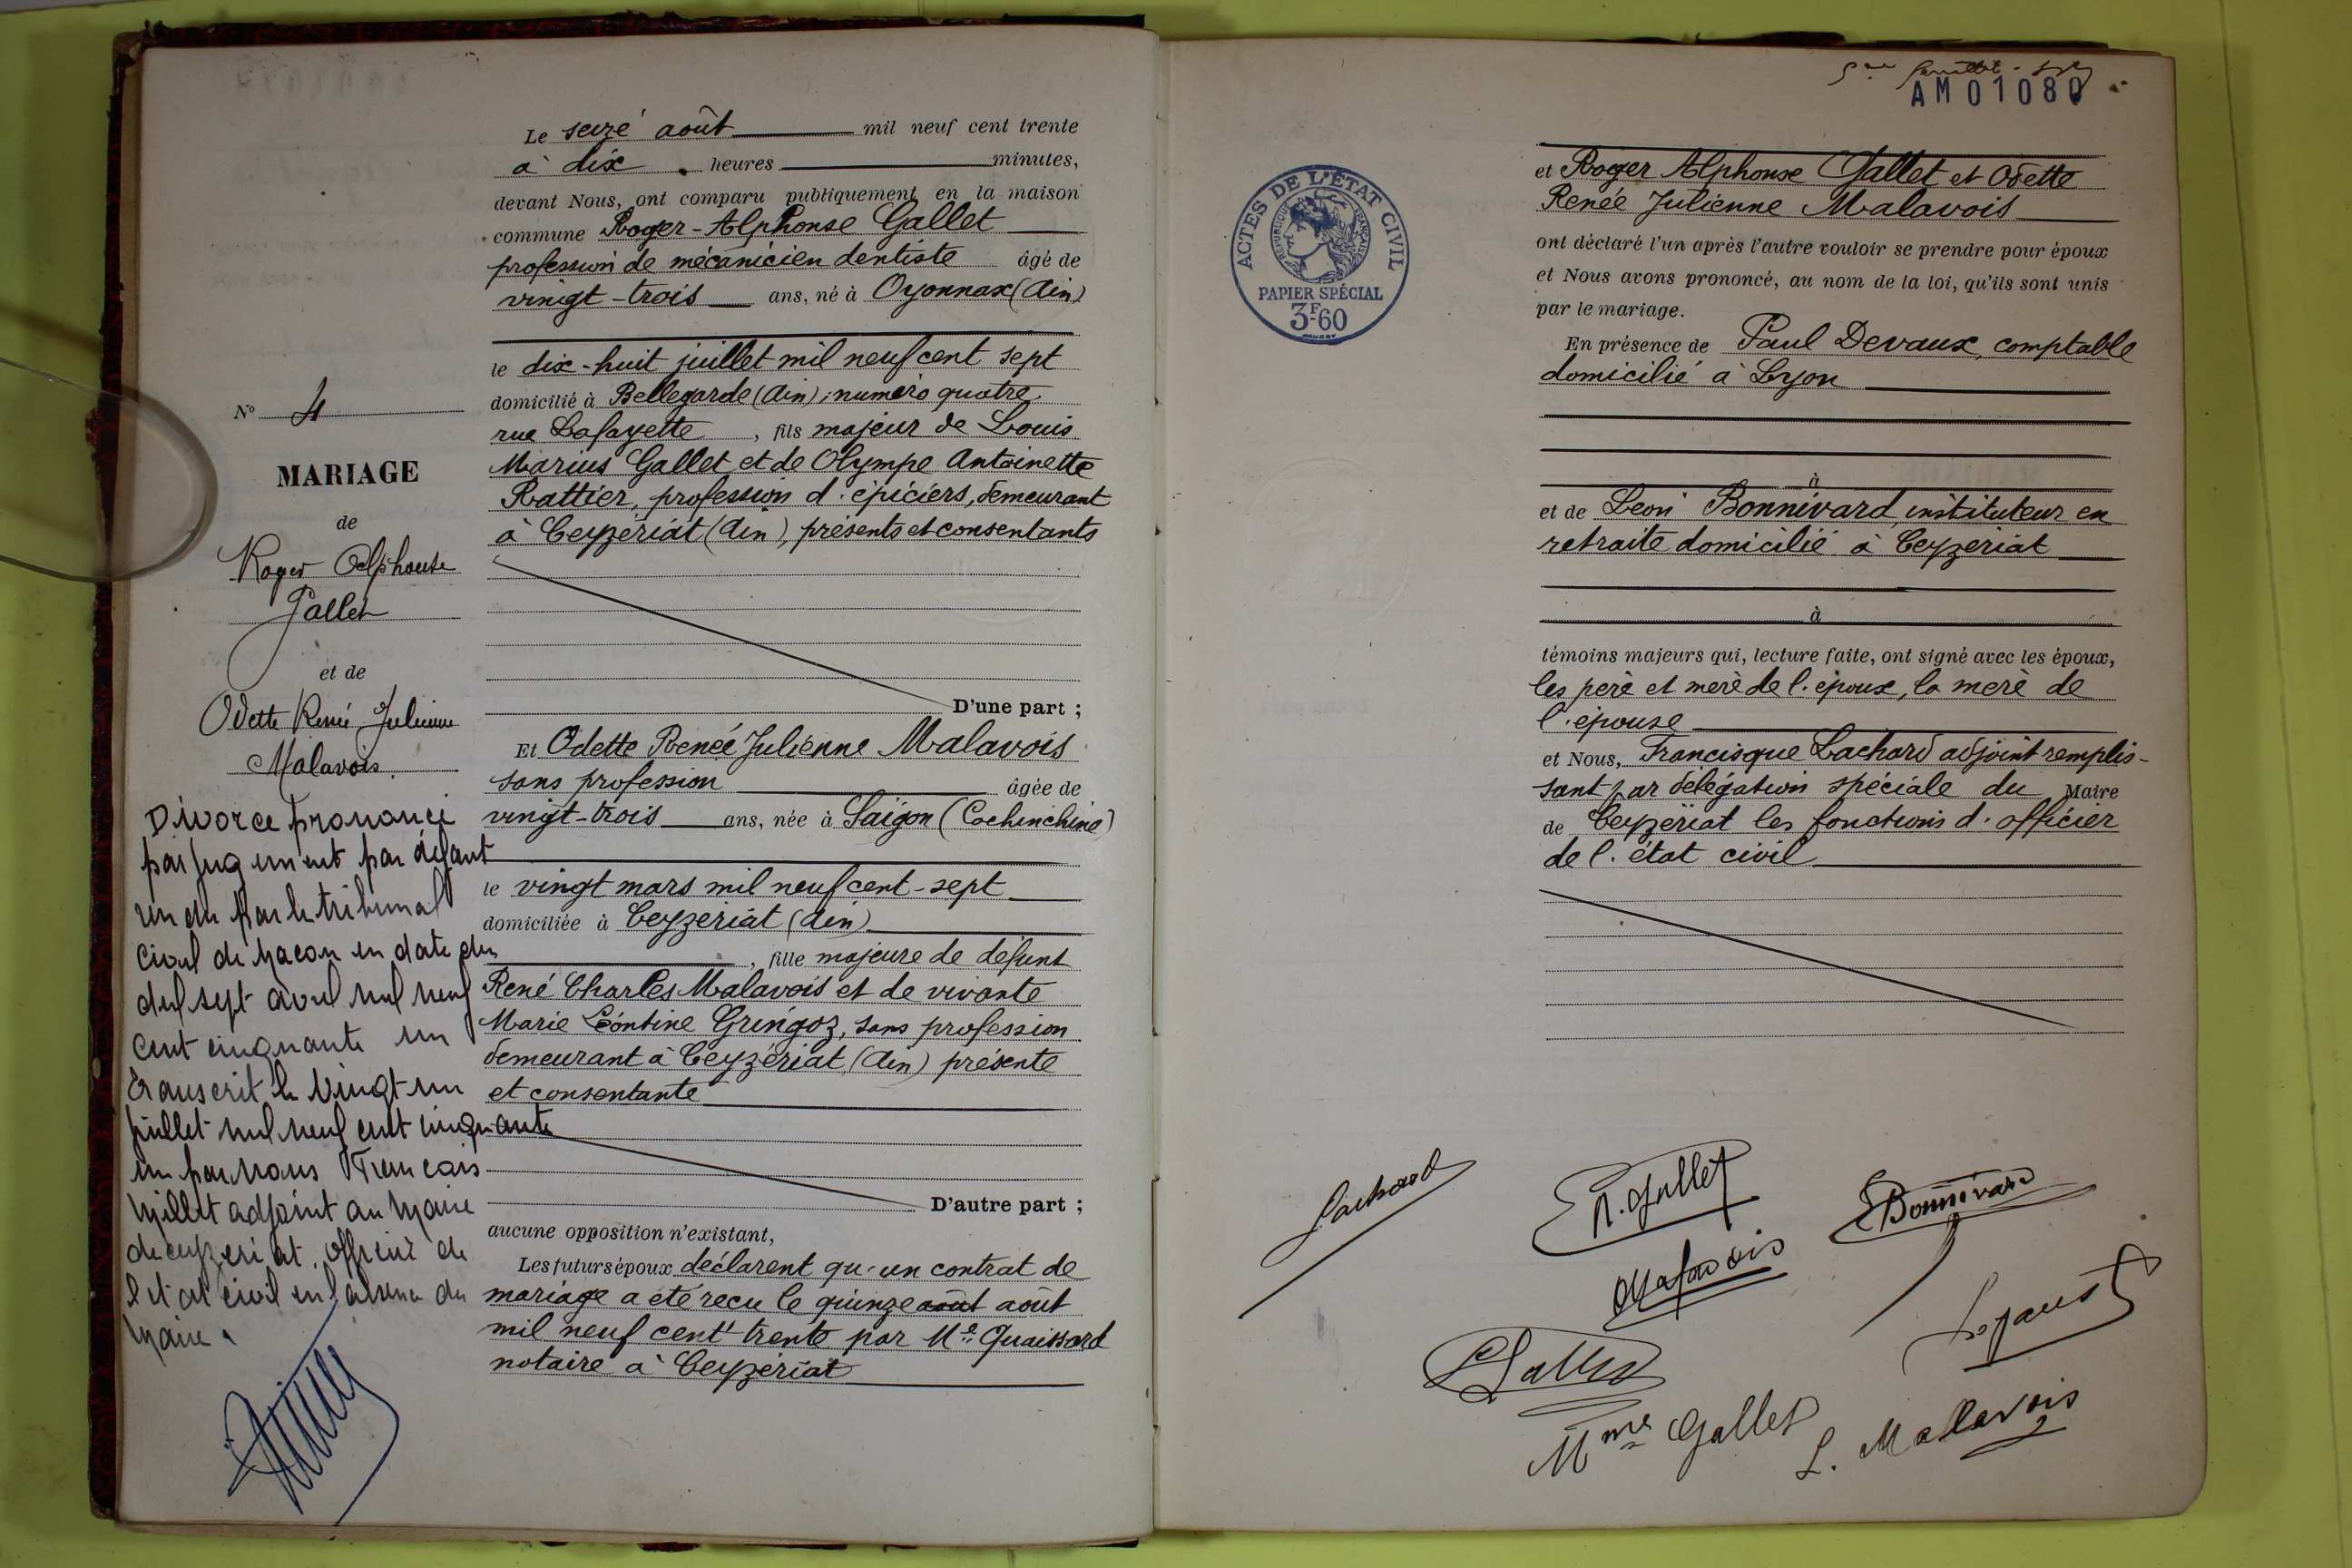 Le seize août mil neuf cent trente
à dix heures minutes,
devant Nous, ont comparu publiquement en la maison
commune Roger-Alphonse Gallet
profession de mécanicien dentiste âgé de
vingt-trois ans, né à Oyonnax (Ain)
le dix-huit juillet mil neuf cent sept
domicilié à Bellegarde (Ain), numéro quatre
rue Lafayette, fils majeur de Louis
Marius Gallet et de Olympe Antoinette
Rattier, profession d'épiciers, demeurant
à Ceyzériat (Ain), présents et consentants
D'une part ;
Et Odette Renée Julienne Malavois
sans profession âgée de
vingt-trois ans, née à Saïgon (Cochinchine)
le vingt mars mil neuf cent-sept
domiciliée à Ceyzériat (Ain)
, fille majeure de défunt
René Charles Malavois et de vivante
Marie Léontine Gringoz, sans profession
demeurant à Ceyzériat (Ain) présente
et consentante
D'autre part ;
aucune opposition n'existant,
Les futurs époux déclarent qu'un contrat de
mariage a été reçu le quinze août août
mil neuf cent trente par Me Quaissard
notaire à Ceyzériat
No 4
MARIAGE
de
Roger Alphonse
Gallet
et de
Odette Renée Julienne
Malavois.
Divorce prononcé
par jugement par défaut
rendu par le tribunal
civil de Macon en date du
dix sept avril mil neuf
cent cinquante un
Transcrit le vingt un
juillet mil neuf cent cinquante
un par nous Francais
Millet adjoint au Maire
de ceyzeriat. officier de
l'etat civil en l'absence du
Maire.
AM01080
et Roger Alphonse Gallet et Odette
Renée Julienne Malavois
ont déclaré l'un après l'autre vouloir se prendre pour époux
et Nous avons prononcé, au nom de la loi, qu'ils sont unis
par le mariage.
En présence de Paul Devaux, comptable
domicilié à Lyon
à
et de Léon Bonnevard, instituteur en
retraite domicilié à Ceyzériat
à
témoins majeurs qui, lecture faite, ont signé avec les époux,
les père et mère de l'époux, la mère de
l'épouse
et Nous, Francisque Lachard adjoint remplis-
sant par délégation spéciale du Maire
de Ceyzériat les fonctions d'officier
de l'état civil
ACTES DE L'ÉTAT CIVIL
RÉPUBLIQUE FRANÇAISE
PAPIER SPÉCIAL
3F-60
Lachard
R. Gallet
Bonnevard
Malavois
Gallet
Mme Gallet
L. Malavois